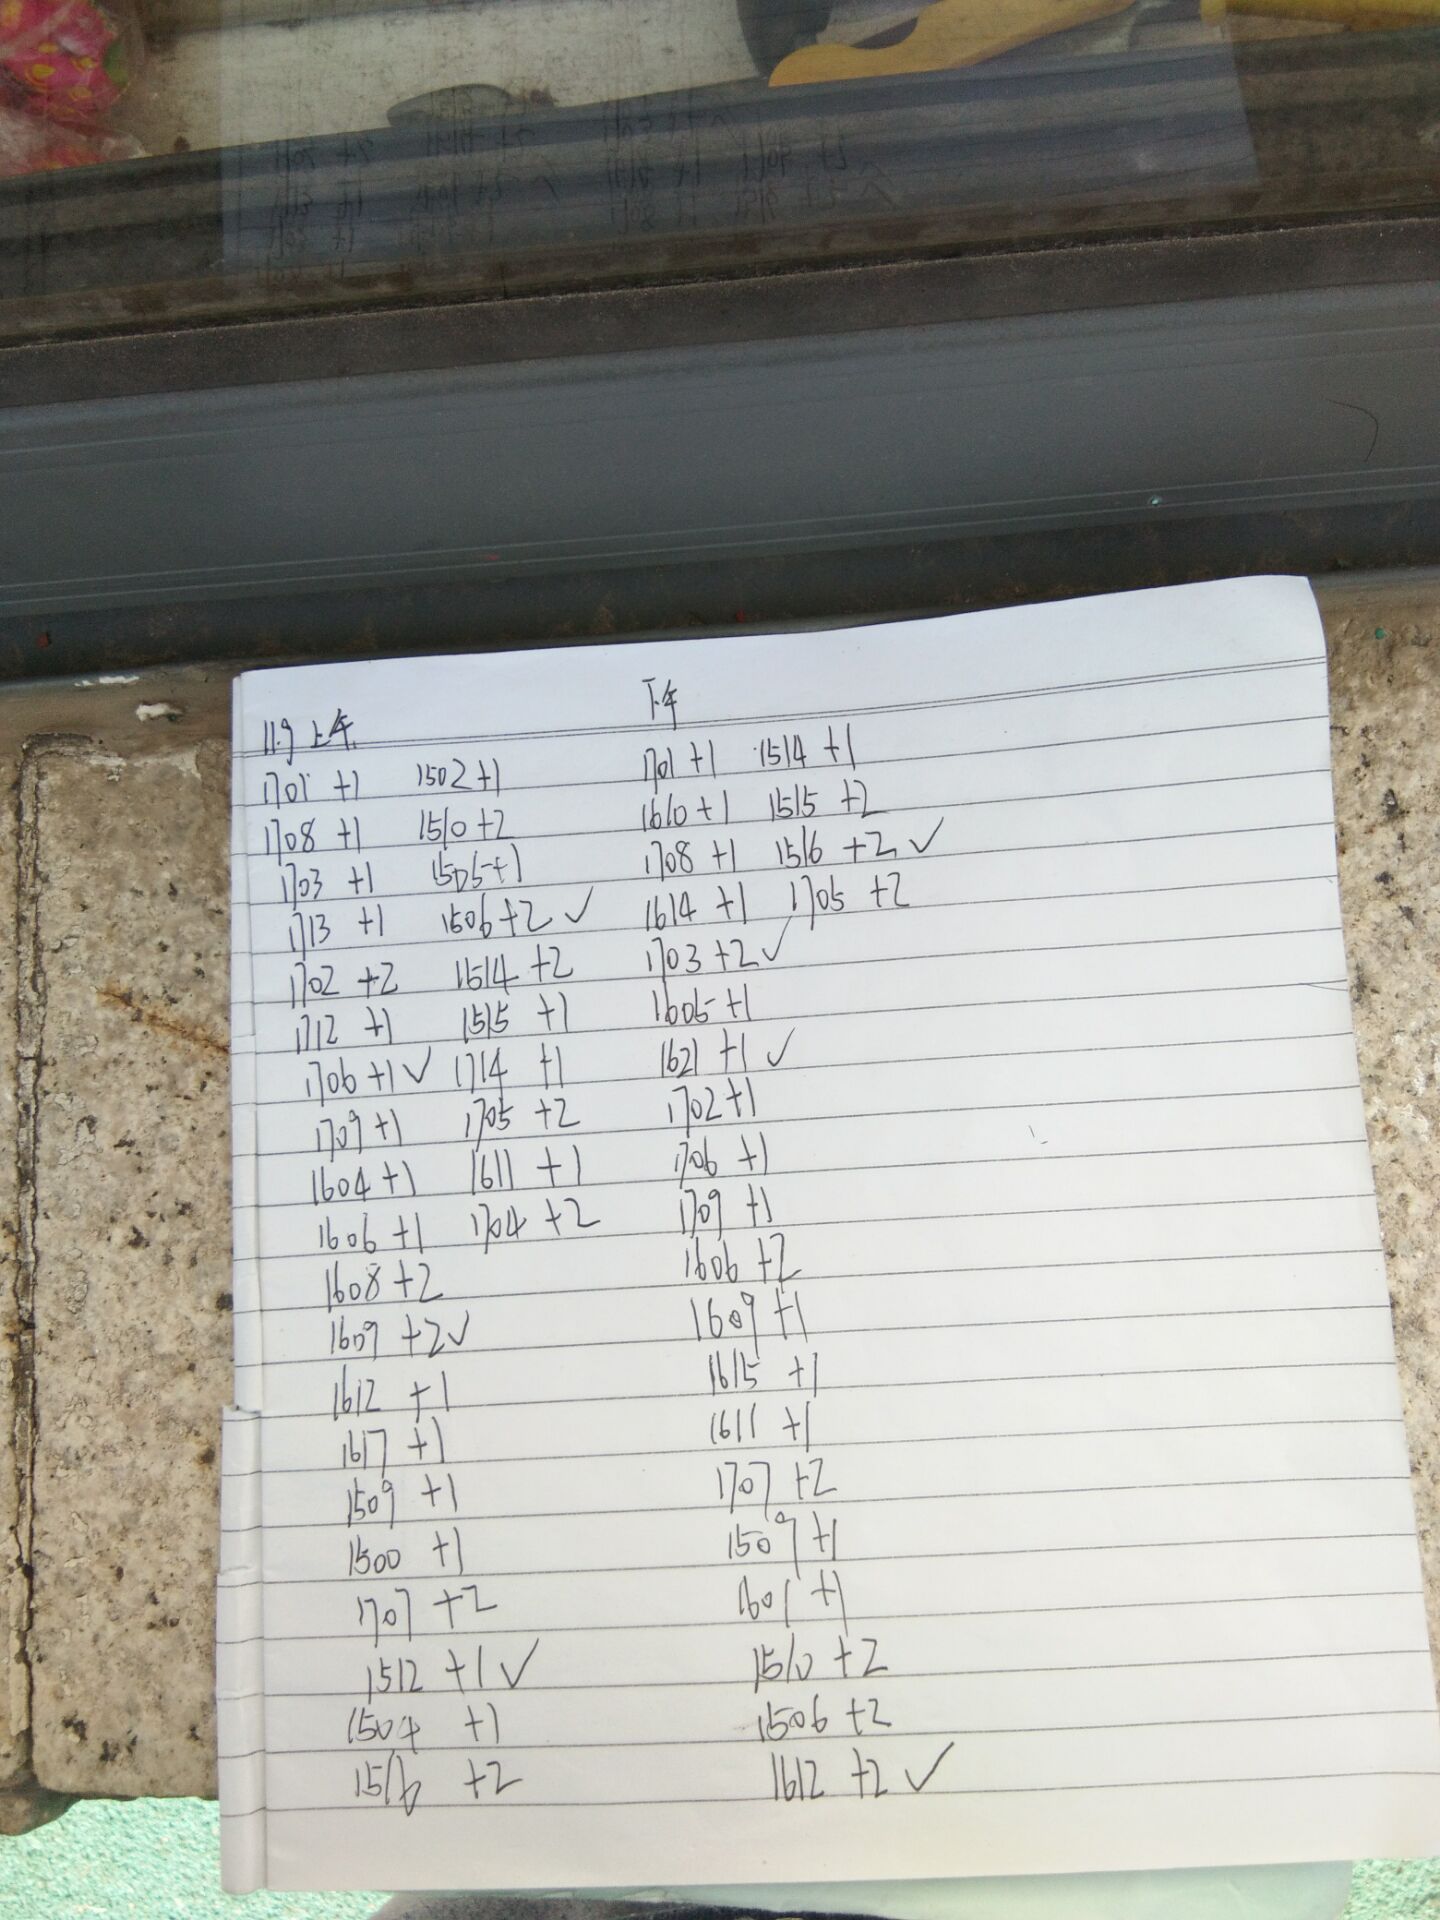 11.9 上午 下午
1701 +1 1502 +1 1701 +1 1514 +1
1708 +1 1510 +2 1610 +1 1515 +2
1703 +1 1505 +1 1708 +1 1516 +2 ✓
1713 +1 1506 +2 ✓ 1614 +1 1705 +2
1702 +2 1514 +2 1703 +2 ✓
1712 +1 1515 +1 1605 +1
1706 +1 ✓ 1714 +1 1621 +1 ✓
1709 +1 1705 +2 1702 +1
1604 +1 1611 +1 1706 +1
1606 +1 1704 +2 1709 +1
1608 +2 1606 +2
1609 +2 ✓ 1609 +1
1612 +1 1615 +1
1617 +1 1611 +1
1509 +1 1707 +2
1500 +1 1509 +1
1707 +2 1601 +1
1512 +1 ✓ 1510 +2
1504 +1 1506 +2
1516 +2 1612 +2 ✓